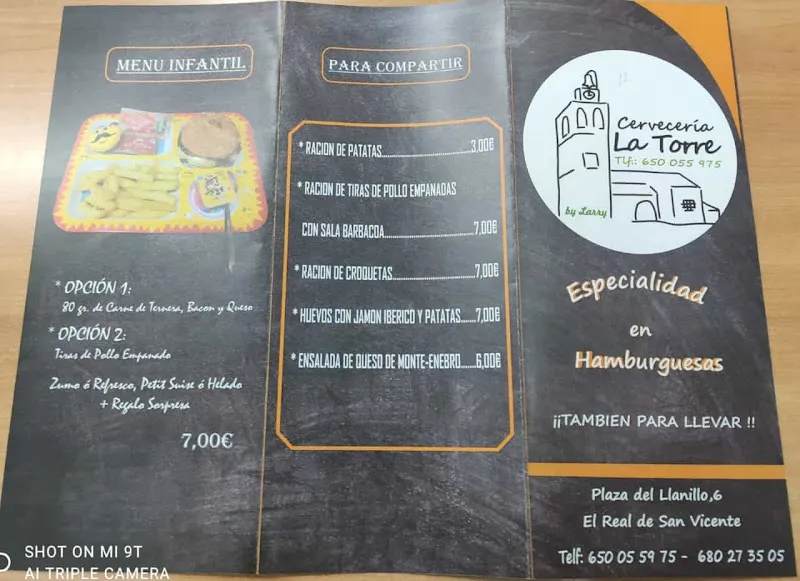 MENU INFANTIL
* OPCIÓN 1:
80 gr. de Carne de Ternera, Bacon y Queso
* OPCIÓN 2:
Tiras de Pollo Empanado
Zumo ó Refresco, Petit Suise ó Helado
+ Regalo Sorpresa
7,00€
PARA COMPARTIR
* RACION DE PATATAS................................3,00€
* RACION DE TIRAS DE POLLO EMPANADAS
CON SALA BARBACOA................................7,00€
* RACION DE CROQUETAS................................7,00€
* HUEVOS CON JAMON IBERICO Y PATATAS.......7,00€
* ENSALADA DE QUESO DE MONTE-ENEBRO.......6,00€
Cervecería
La Torre
Tlf.: 650 055 975
by Larry
Especialidad
en
Hamburguesas
¡¡TAMBIEN PARA LLEVAR !!
Plaza del Llanillo,6
El Real de San Vicente
Telf: 650 05 59 75 - 680 27 35 05
SHOT ON MI 9T
AI TRIPLE CAMERA